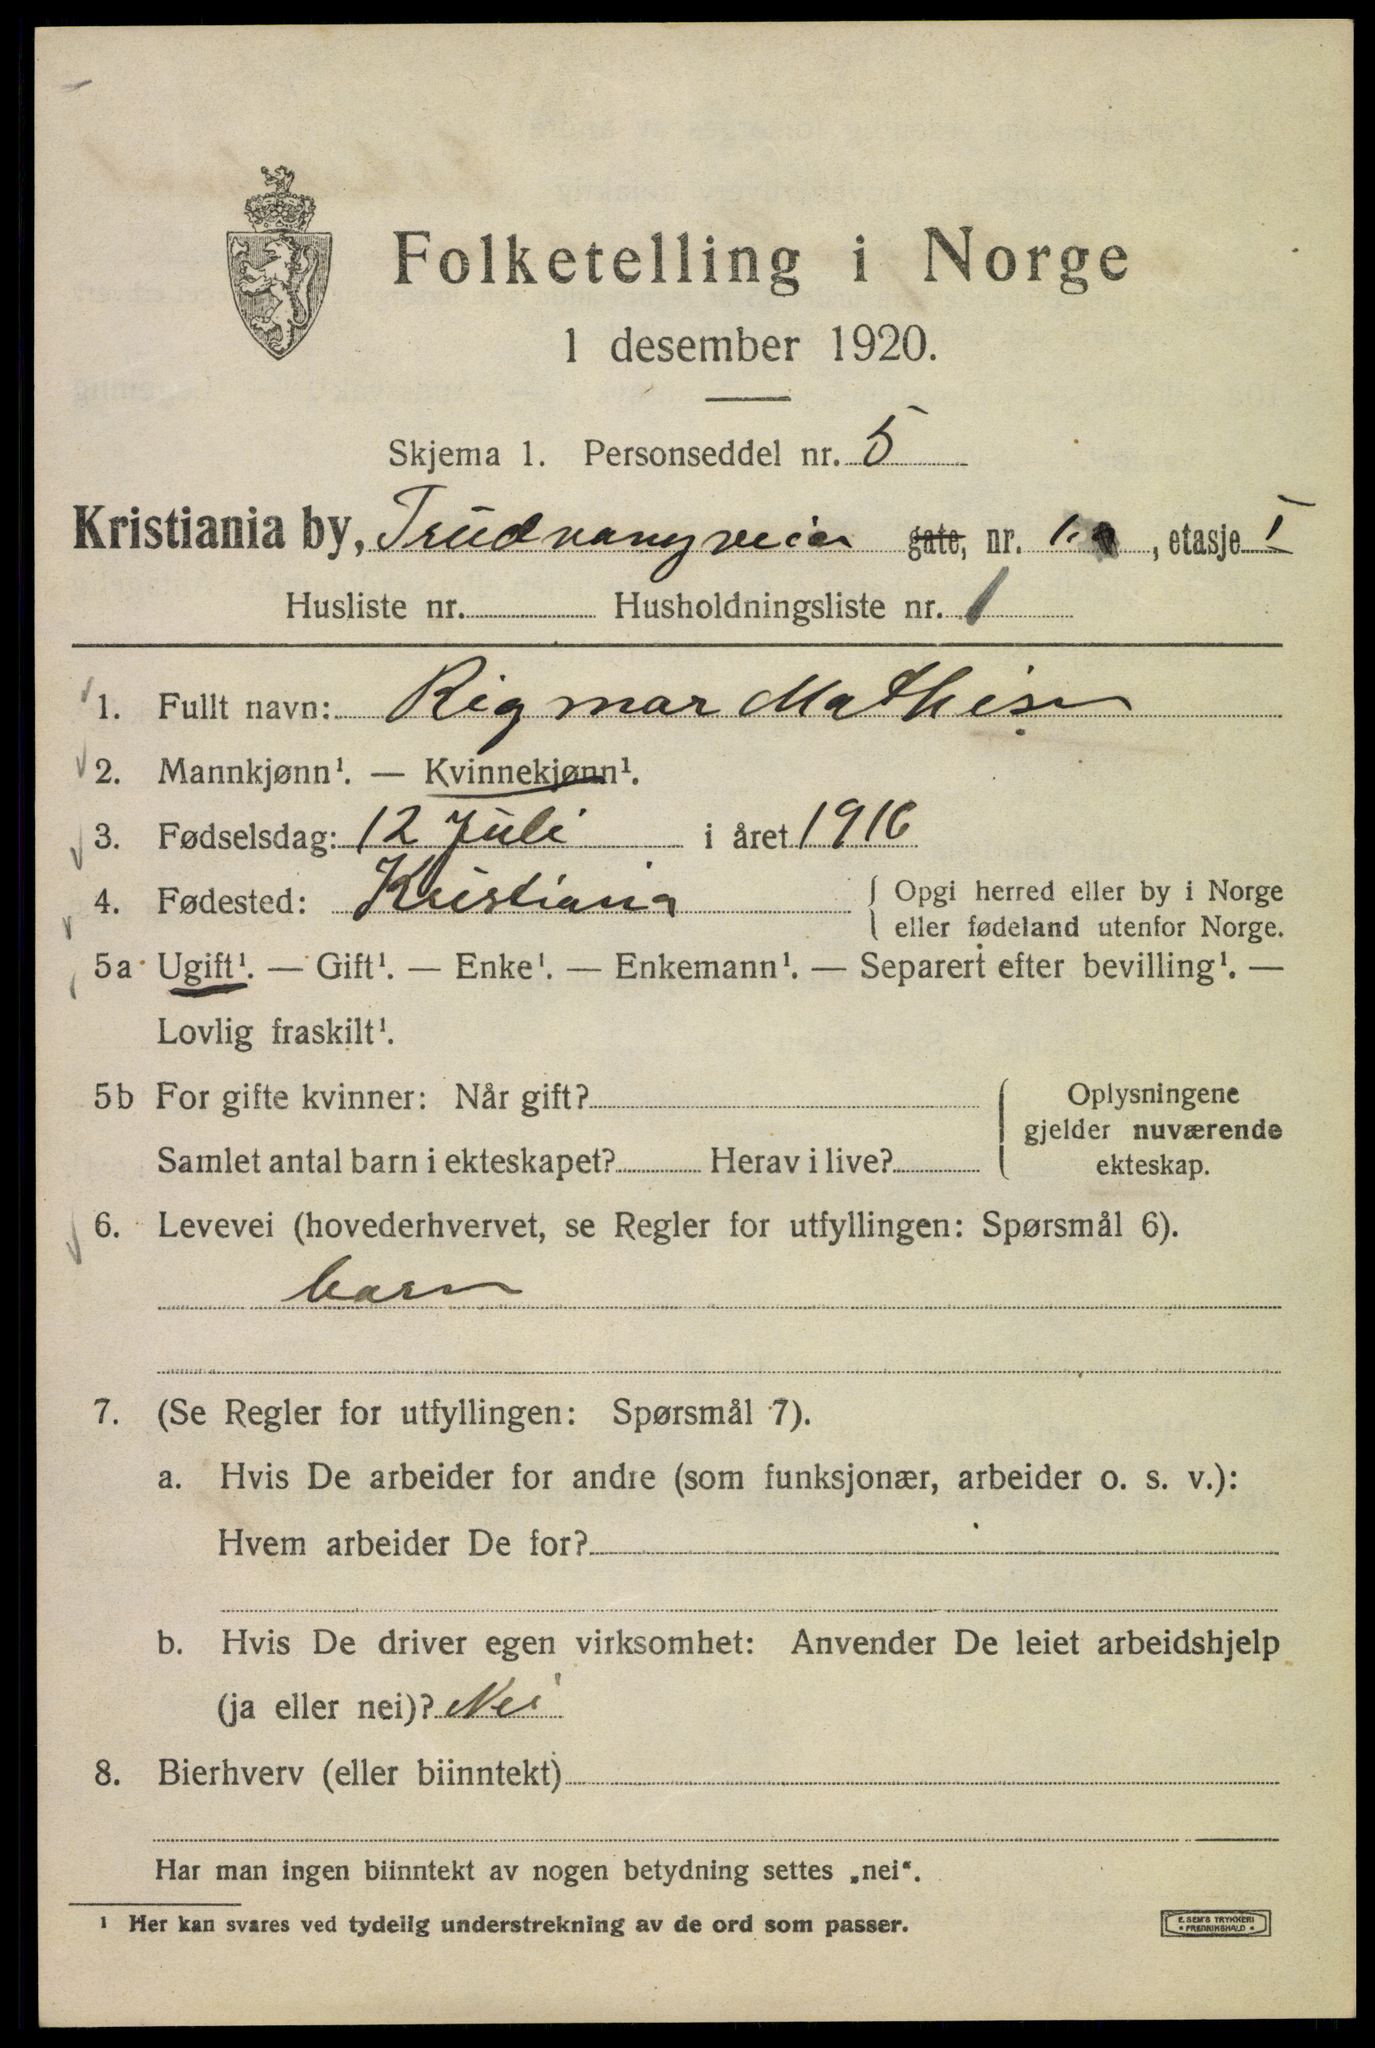 Folketelling i Norge
1 desember 1920.
Skjema 1. Personseddel nr. 5
Kristiania by, Trudvangveien gate, nr. , etasje I
Husliste nr. Husholdningsliste nr. 1
1. Fullt navn: Rigmar Mathisen
2. Mannkjønn¹. — Kvinnekjønn¹.
3. Fødselsdag: 12 Juli i året 1916
4. Fødested: Kristiania { Opgi herred eller by i Norge
eller fødeland utenfor Norge.
5a Ugift¹. — Gift¹. — Enke¹. — Enkemann¹. — Separert efter bevilling¹. —
Lovlig fraskilt¹.
5b For gifte kvinner: Når gift? { Oplysningene
gjelder nuværende
Samlet antal barn i ekteskapet? Herav i live? ekteskap.
6. Levevei (hovederhvervet, se Regler for utfyllingen: Spørsmål 6).
barn
7. (Se Regler for utfyllingen: Spørsmål 7).
a. Hvis De arbeider for andre (som funksjonær, arbeider o. s. v.):
Hvem arbeider De for?
b. Hvis De driver egen virksomhet: Anvender De leiet arbeidshjelp
(ja eller nei)? Nei
8. Bierhverv (eller biinntekt)
Har man ingen biinntekt av nogen betydning settes „nei“.
¹ Her kan svares ved tydelig understrekning av de ord som passer.
E. SEM'S TRYKKERI
* FREDRIKSHALD *